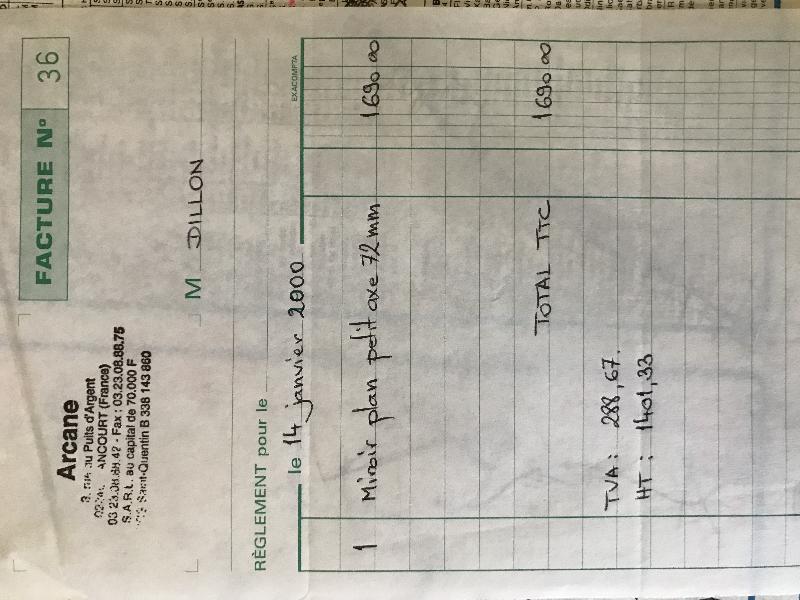 FACTURE N° 36
Arcane
au Puits d'Argent
ANCOURT (France)
03.23.08.88.42 - Fax : 03.23.08.88.75
S.A.R.L. au capital de 70.000 F
Saint-Quentin B 338 143 860
M DILLON
RÈGLEMENT pour le
le 14 janvier 2000
EXACOMPTA
1 Miroir plan petit axe 72 mm 1690.00
TOTAL TTC 1690.00
TVA : 288,67.
HT : 1401,33